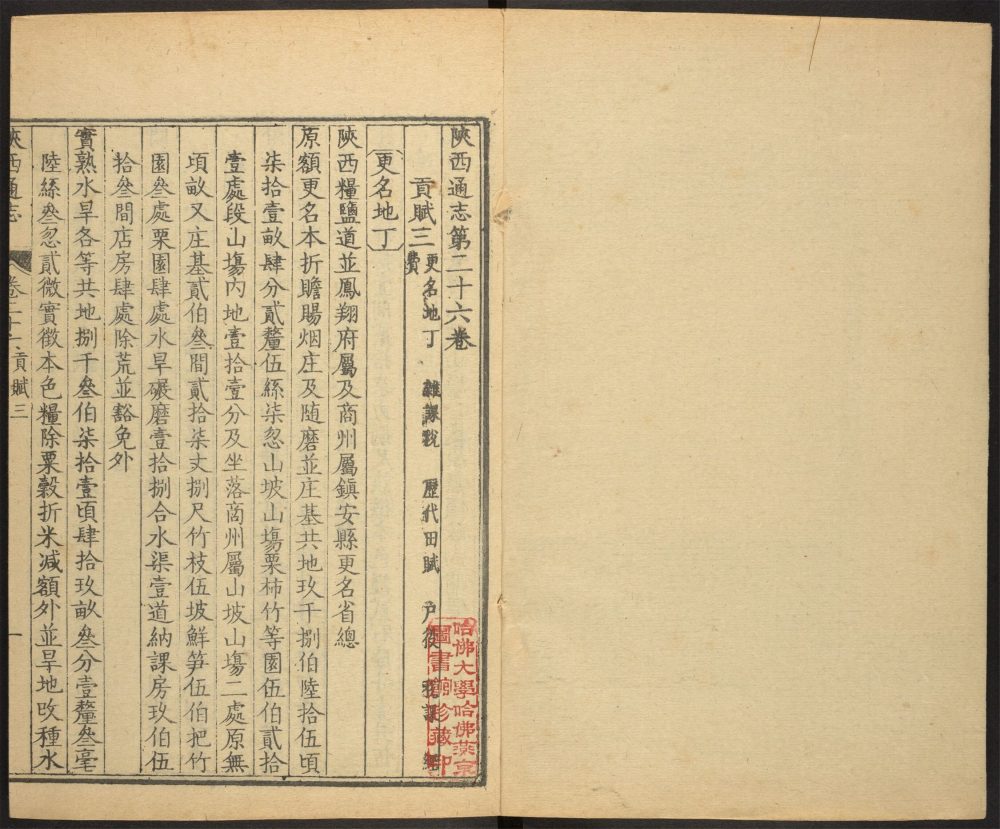 陝西通志第二十六卷
貢賦三 更名地丁 雜課稅 歷代田賦 戶役 稅課 經
費
更名地丁
陝西糧鹽道並鳳翔府屬及商州屬鎮安縣更名省總
原額更名本折贍賜烟庄及随磨並庄基共地玖千捌伯陸拾伍頃
柒拾壹畝肆分貳釐伍絲柒忽山坡山塲栗柿竹等園伍伯貳拾
壹處段山塲內地壹拾壹分及坐落商州屬山坡山塲二處原無
頃畝又庄基貳伯叁間貳拾柒丈捌尺竹枝伍坡鮮笋伍伯把竹
園叁處栗園肆處水旱碾磨壹拾捌合水渠壹道納課房玖伯伍
拾叁間店房肆處除荒並豁免外
實熟水旱各等共地捌千叁伯柒拾壹頃肆拾玖畝叁分壹釐叁毫
陸絲叁忽貳微實徵本色糧除粟穀折米減額外並旱地改種水
陝西通志
卷二十六 貢賦三
一
哈佛大學哈佛燕京
圖書館珍藏印